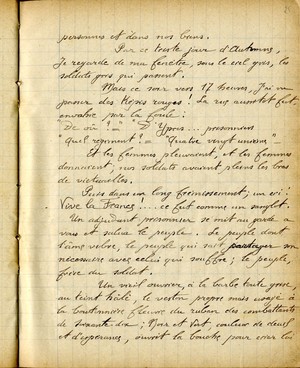 personnes et dans nos bras.
Par ce triste jour d'Automne,
Je regarde de ma fenêtre, sous le ciel gris, les
soldats gris qui passent.
Mais ce soir vers 17 heures, J'ai vu
passer des Képis rouges! La rue aussitôt fut
envahie par la foule:
"De où?" = "D'Ypres... prisonniers
"Quel régiment"? = "Quatre vingt unième" =
Et les femmes pleuraient, et les femmes
donnaient; nos soldats avaient pleins les bras
de victuailles.
Puis dans un long frémissement, un cri:
Vive la France... ce fut comme un sanglot.
Un adjudant prisonnier se mit au garde a
vous et salua le peuple. Le peuple dont
l'âme vibre, le peuple qui sait partager son
nécessaire avec celui qui souffre; le peuple,
frère du soldat.
Un vieil ouvrier, à la barbe toute grise,
au teint hâlé, le veston propre mais usagé à
la boutonnière fleurie du ruban des combattants
de soixante dix; Noir et Vert, couleur de deuil
et d'espérance, ouvrit la bouche pour crier la